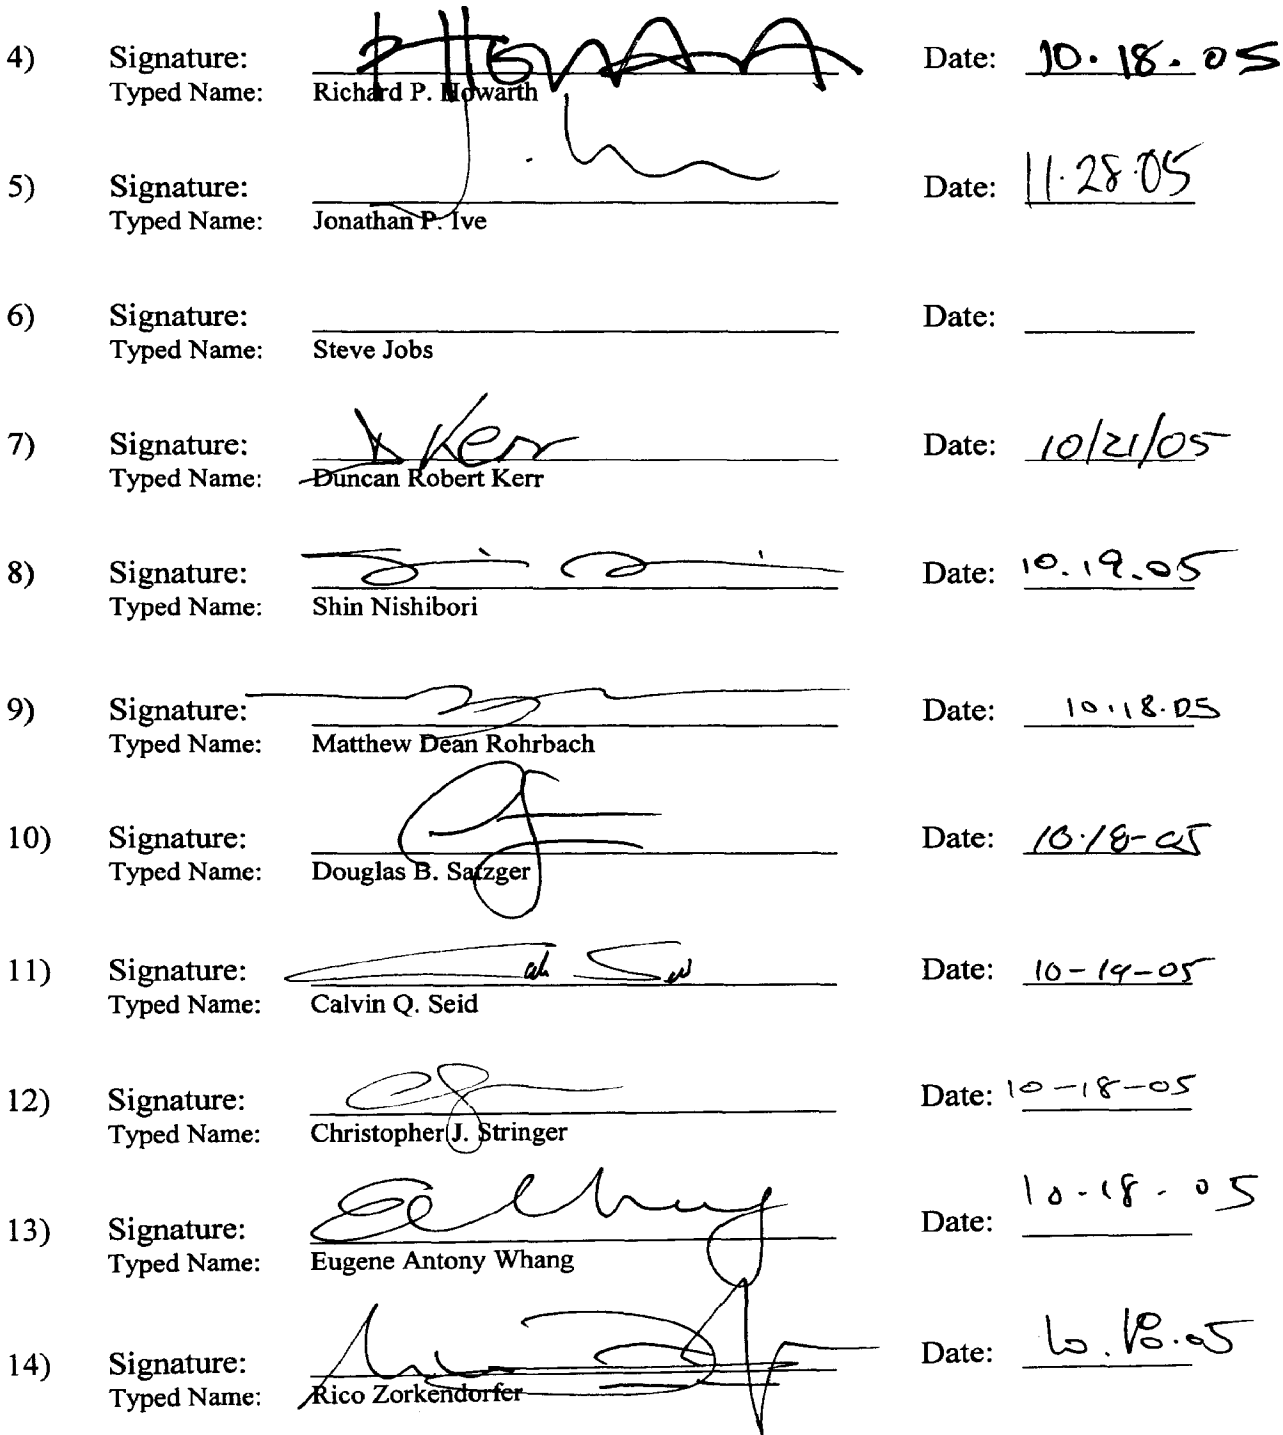 4) Signature: Date: 10.18.05
Typed Name: Richard P. Howarth
5) Signature: Date: 11.28.05
Typed Name: Jonathan P. Ive
6) Signature: Date:
Typed Name: Steve Jobs
7) Signature: D Kerr Date: 10/21/05
Typed Name: Duncan Robert Kerr
8) Signature: Date: 10.19.05
Typed Name: Shin Nishibori
9) Signature: Date: 10.18.05
Typed Name: Matthew Dean Rohrbach
10) Signature: Date: 10.18-05
Typed Name: Douglas B. Satzger
11) Signature: Date: 10-19-05
Typed Name: Calvin Q. Seid
12) Signature: Date: 10-18-05
Typed Name: Christopher J. Stringer
13) Signature: Date: 10.18.05
Typed Name: Eugene Antony Whang
14) Signature: Date: 10.18.05
Typed Name: Rico Zorkendorfer